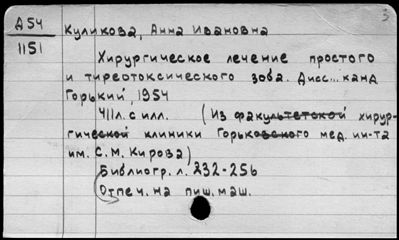 3
Д54
1151
Куликова, Анна Ивановна
Хирургическое лечение простого
и тиреотоксического зоба. Дисс... канд
Горький, 1954
411л. с илл. (Из факультетской хирур-
гической клиники Горьковского мед. ин-та
им. С.М. Кирова)
Библиогр. л. 232-256
Отпеч. на пиш. маш.